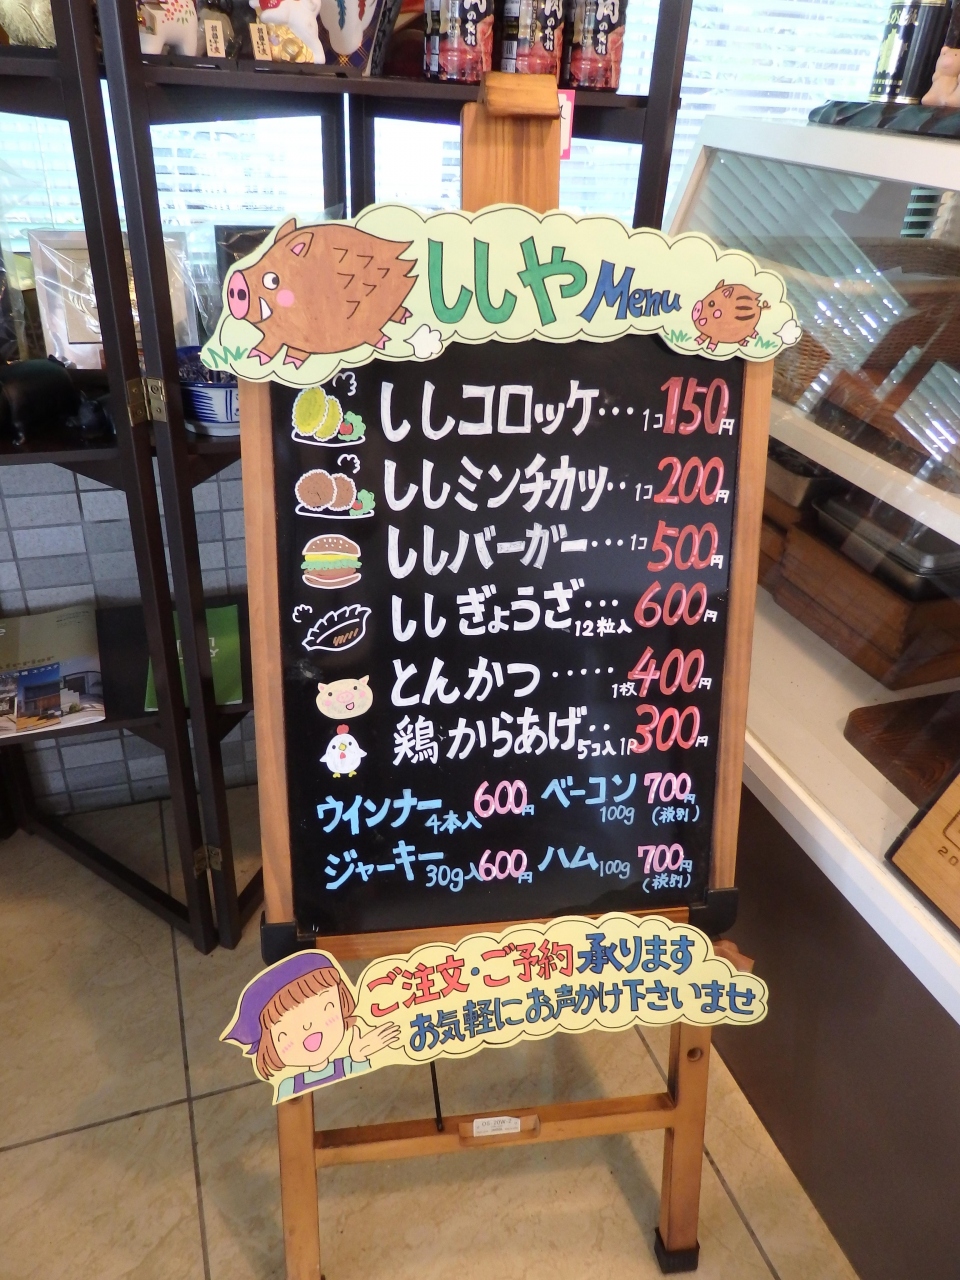 ししや Menu
ししコロッケ… 1コ 150円
ししミンチカツ‥ 1コ 200円
ししバーガー… 1コ 500円
ししぎょうざ… 12粒入 600円
とんかつ…… 1枚 400円
鶏からあげ‥ 5コ入 1P 300円
ウインナー 4本入 600円 ベーコン 100g 700円 (税別)
ジャーキー 30g入 600円 ハム 100g 700円 (税別)
ご注文・ご予約承ります
お気軽にお声かけ下さいませ